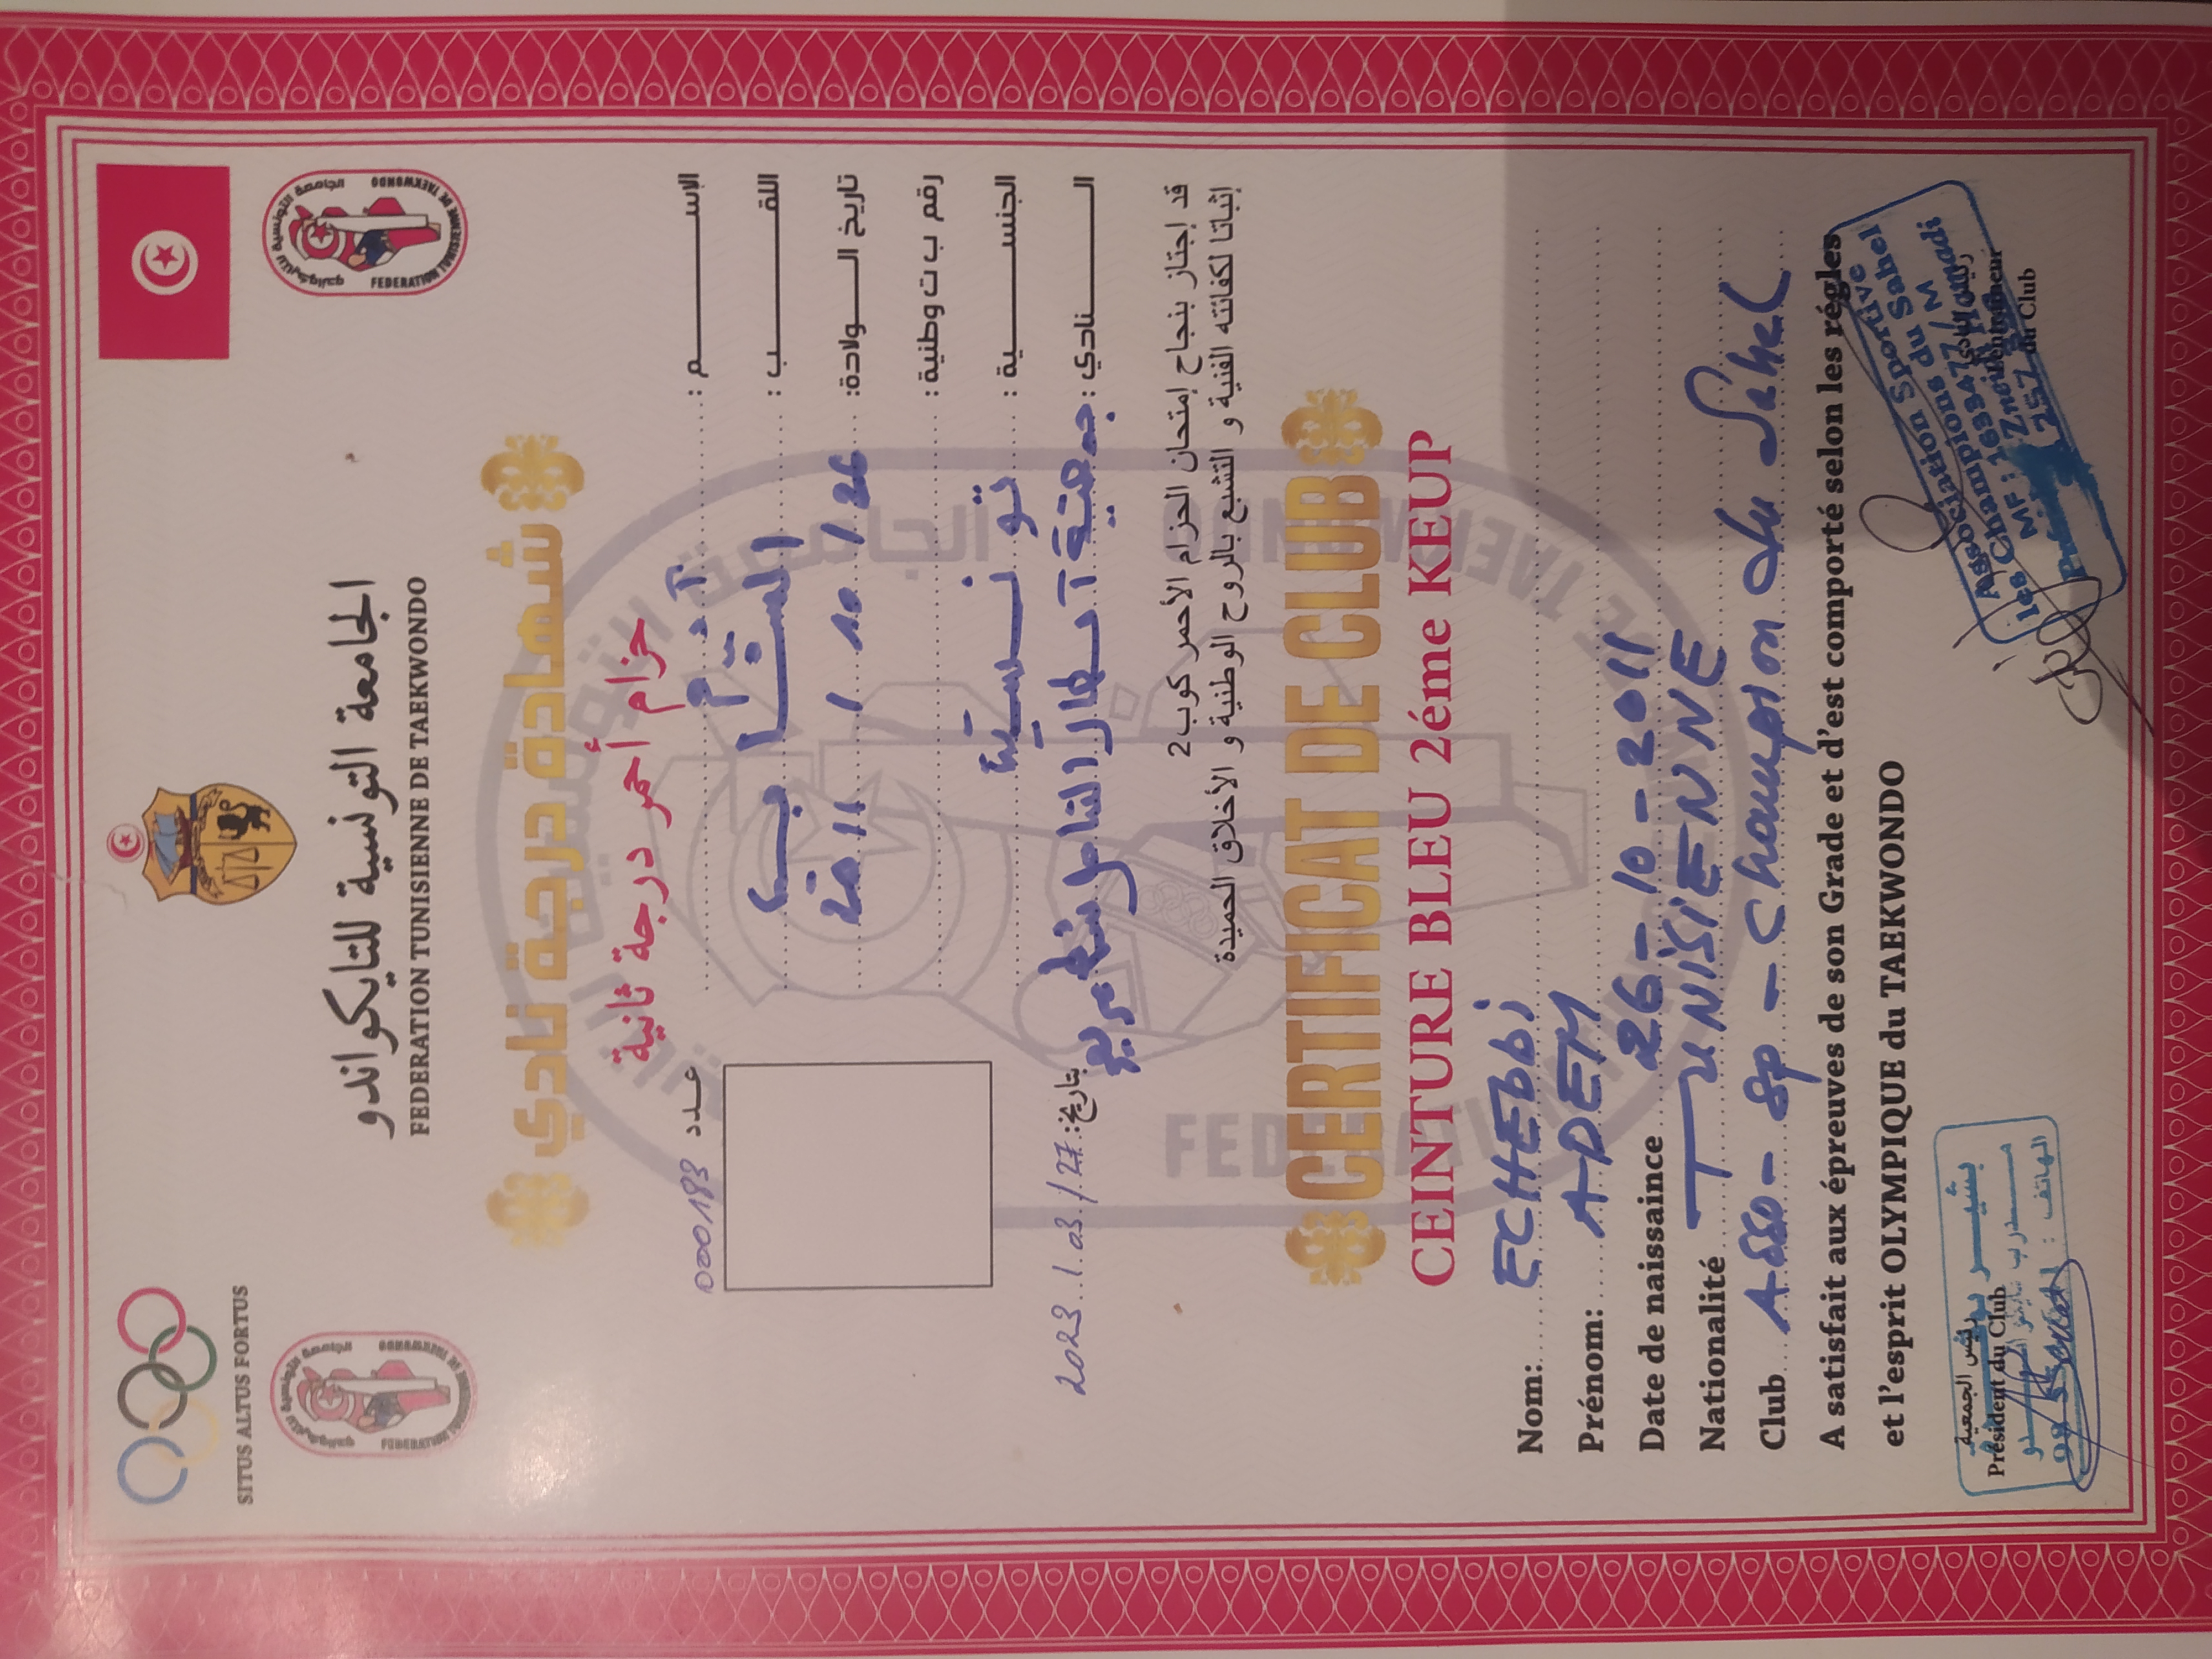 SITUS ALTUS FORTUS
الجامعة التونسية للتايكواندو
FEDERATION TUNISIENNE DE TAEKWONDO
شهادة درجة نادي
حزام أحمر درجة ثانية
عدد 000193
الإسم : آدم
اللقب : الشابي
تاريخ الولادة: 26 / 10 / 2011
رقم ب ت وطنية :
الجنسية : تونسية
النادي : جمعية أبطال الساحل
بتاريخ: 27 / 03 / 2023
قد إجتاز بنجاح إمتحان الحزام الأحمر كوب 2
إثباتا لكفائته الفنية و التشبع بالروح الوطنية و الأخلاق الحميدة
CERTIFICAT DE CLUB
CEINTURE BLEU 2éme KEUP
Nom: ECHEBBi
Prénom: ADEM
Date de naissance 26-10-2011
Nationalité TUNISIENNE
Club Asso - sp - champion du Sahel
A satisfait aux épreuves de son Grade et d'est comporté selon les régles
et l'esprit OLYMPIQUE du TAEKWONDO
رئيس الجمعية
Président du Club
الهاتف : 98
Association Sportive
les Champions du Sahel
du Club